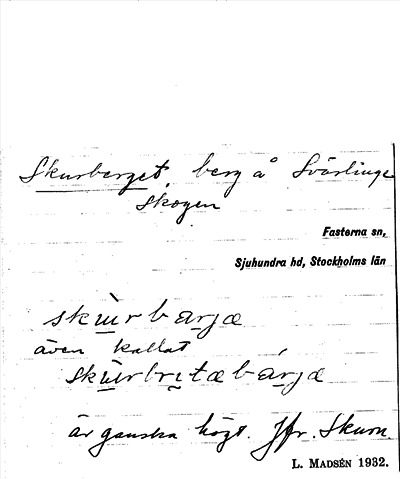 Skurberget, berg å Svärlinge
skogen
Fasterna sn,
Sjuhundra hd, Stockholms län
skùrbarjæ
även kallat
skùrbrɩtæbárjæ
är ganska högt. Jfr. Skurn.
L. MADSÉN 1932.